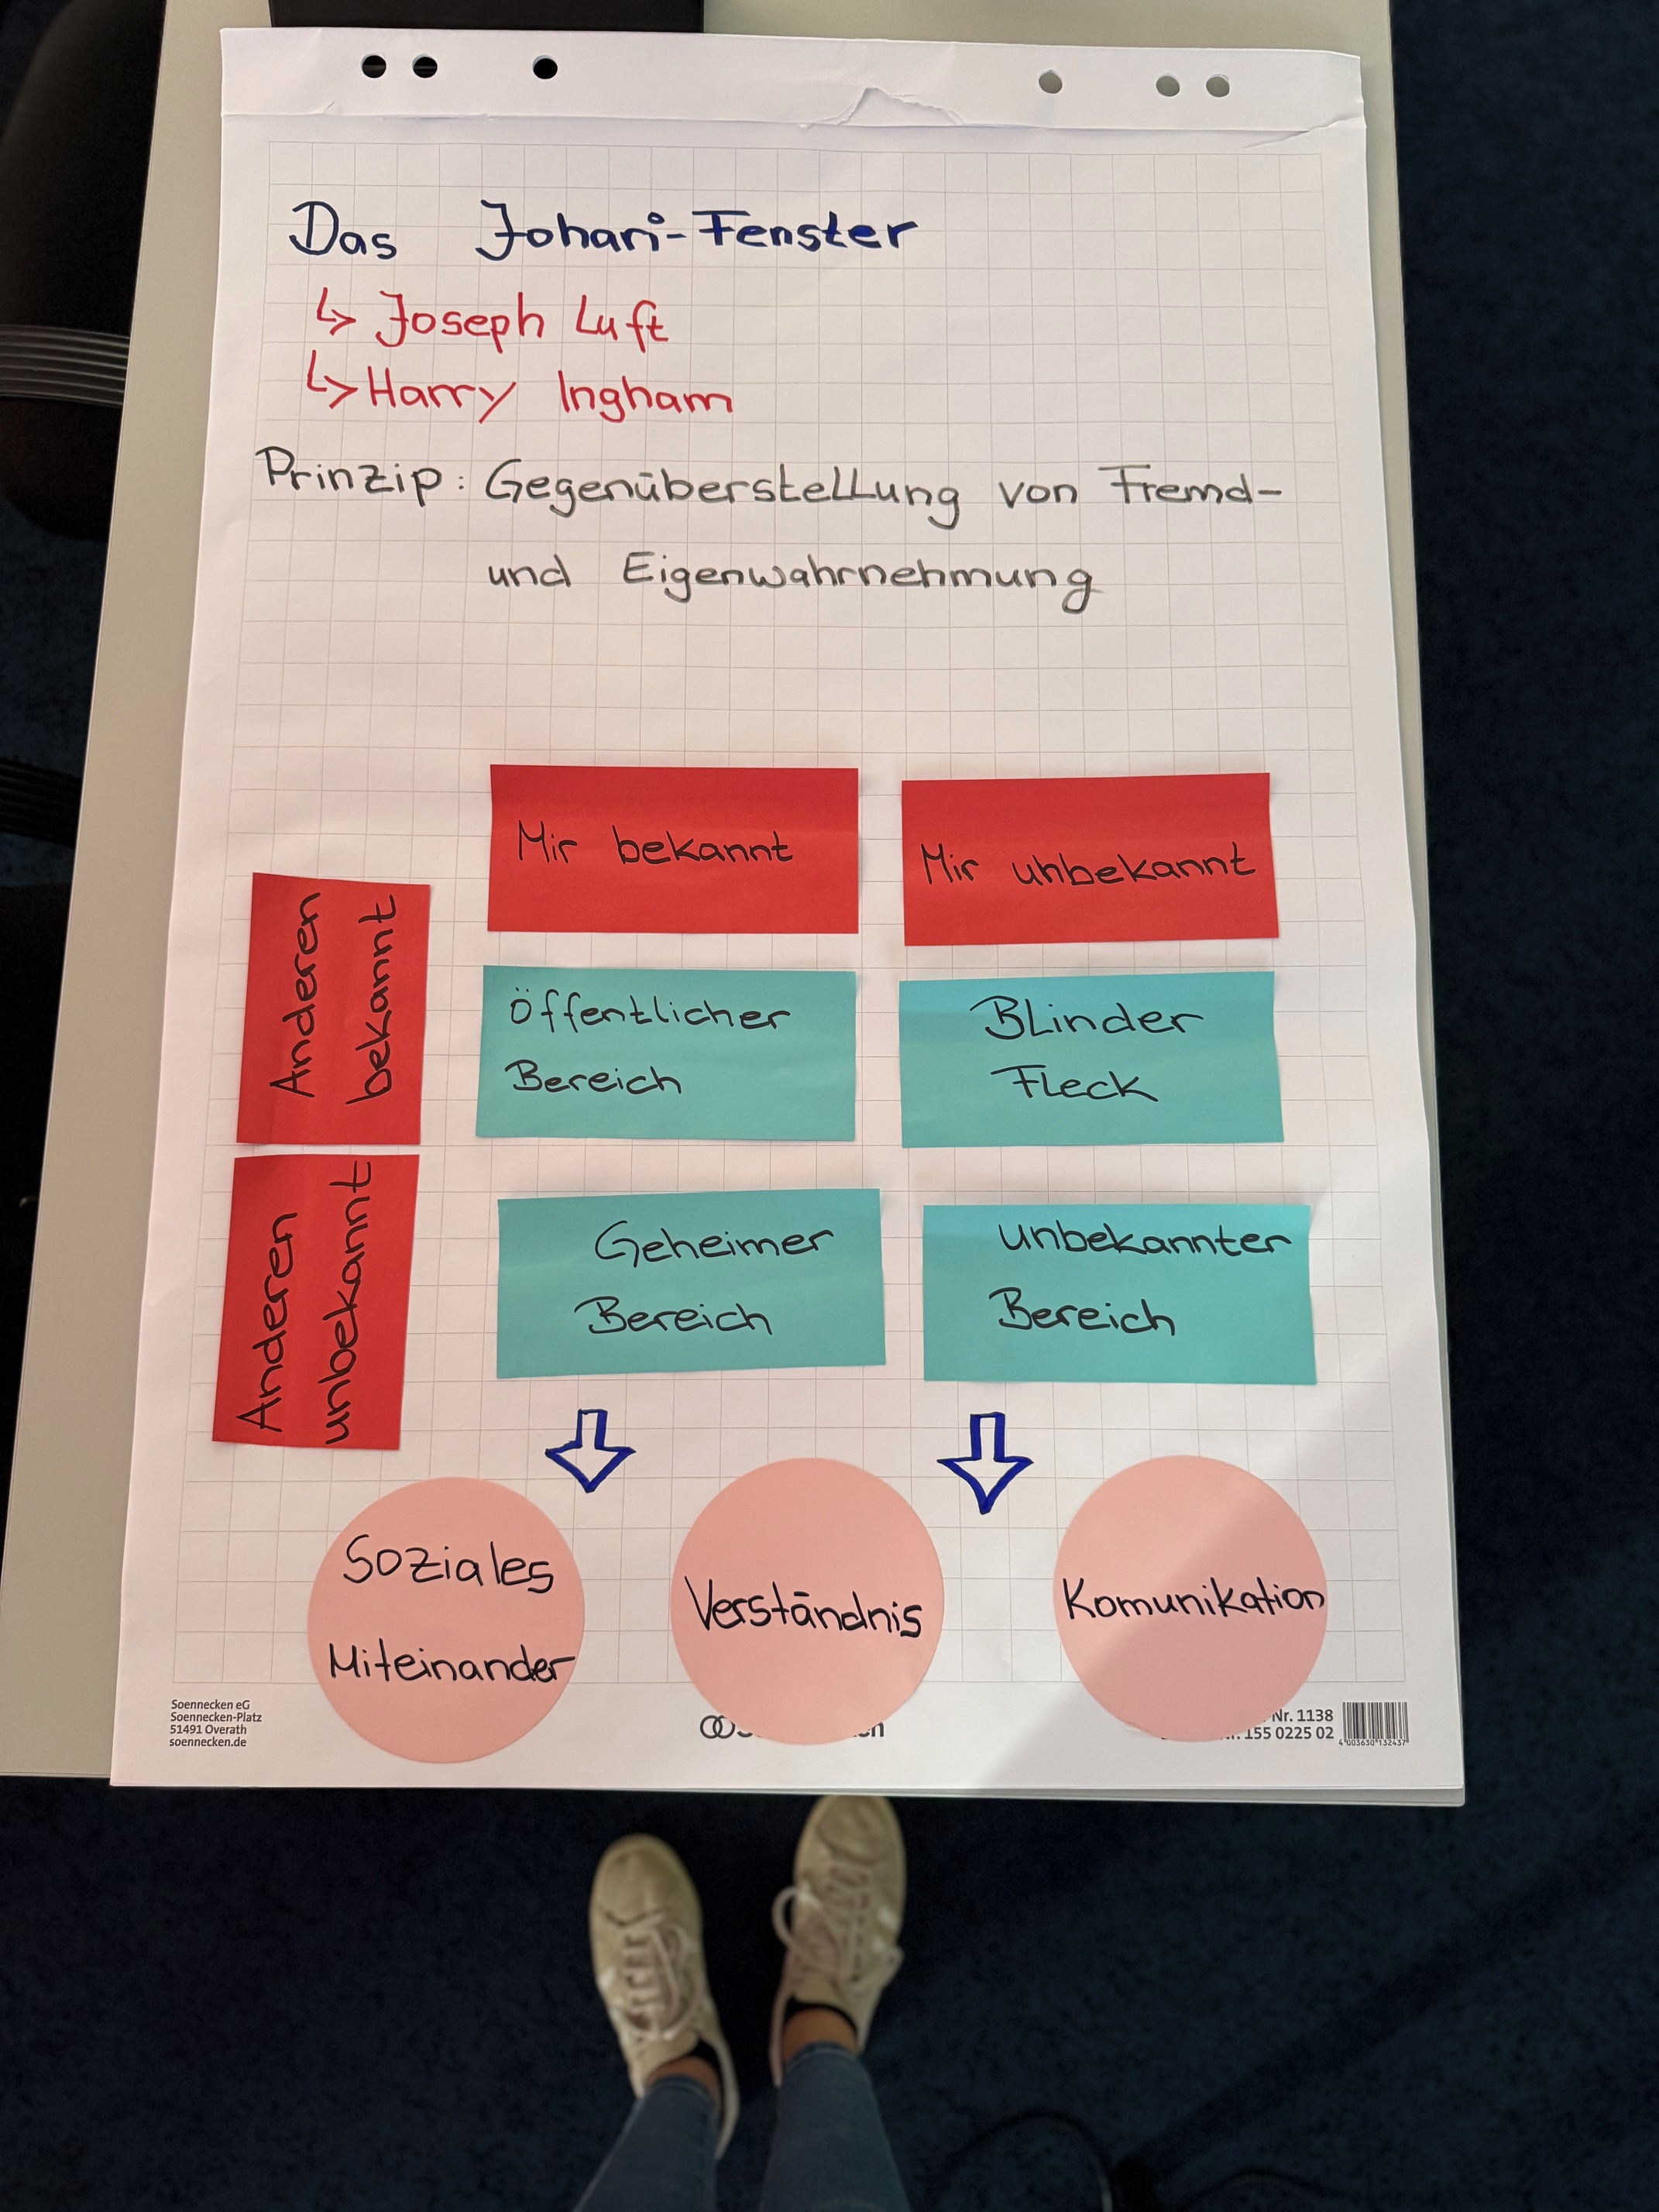 Das Johari-Fenster
↳ Joseph Luft
↳ Harry Ingham
Prinzip: Gegenüberstellung von Fremd-
und Eigenwahrnehmung
Mir bekannt
Mir unbekannt
Anderen
bekannt
Öffentlicher
Bereich
Blinder
Fleck
Anderen
unbekannt
Geheimer
Bereich
unbekannter
Bereich
Soziales
Miteinander
Verständnis
Komunikation
Soennecken eG
Soennecken-Platz
51491 Overath
soennecken.de
Nr. 1138
155 0225 02
4 003630 132437